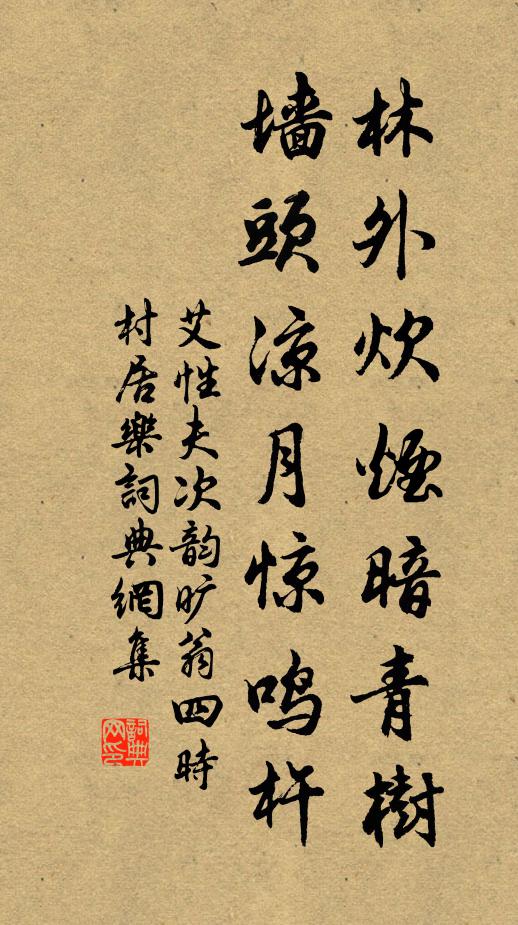 林外炊煙暗青樹
墙頭凉月惊鳴杵
艾性夫次韵旷翁四時
村居樂詞典網集
詞典
网印